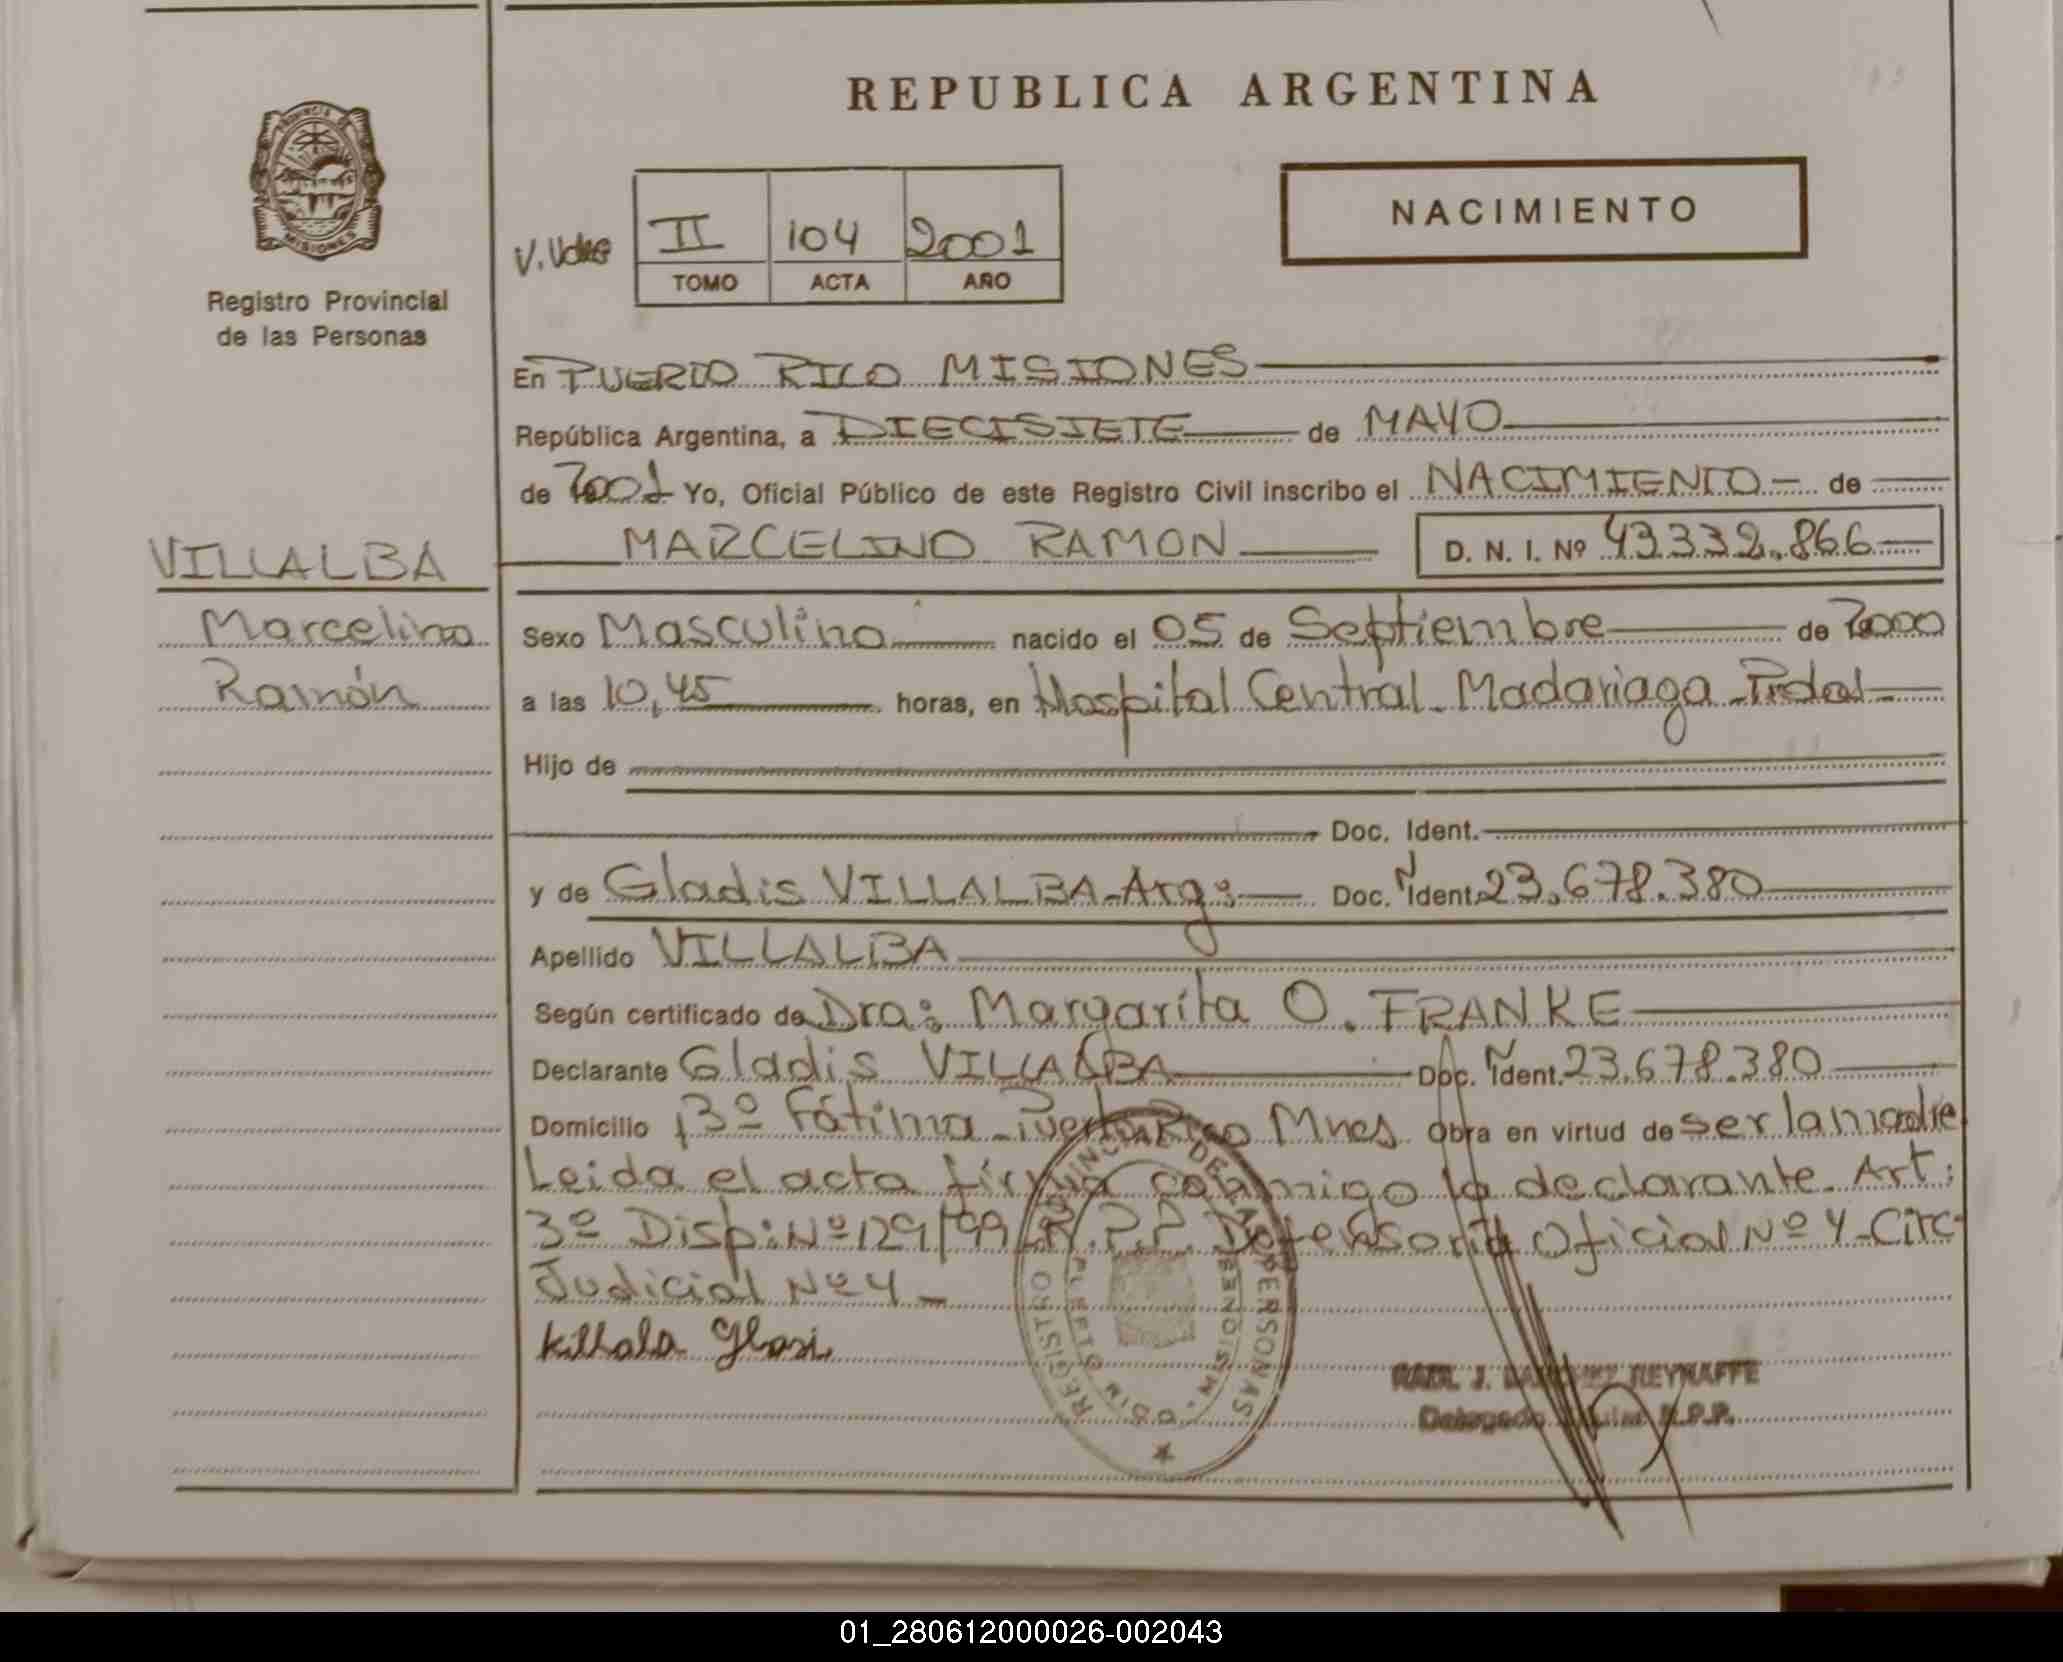 REPUBLICA ARGENTINA
NACIMIENTO
PROVINCIA DE
MISIONES
Registro Provincial
de las Personas
II 104 2001
TOMO ACTA AÑO
En PUERTO RICO MISIONES
República Argentina, a DIECISIETE de MAYO
de 2001 Yo, Oficial Público de este Registro Civil inscribo el NACIMIENTO de
MARCELINO RAMON D. N. I. Nº 43.332.866
VILLALBA
Marcelino
Ramón
Sexo Masculino nacido el 05 de Septiembre de 2000
a las 10,45 horas, en Hospital Central Madariaga Pdas
Hijo de
Doc. Ident.
y de Gladis VILLALBA-Arg: Doc. Ident. Nº 23.678.380
Apellido VILLALBA
Según certificado de Dra: Margarita O. FRANKE
Declarante Gladis VILLALBA Doc. Ident. Nº 23.678.380
Domicilio Bº Fátima-Puerto Rico Mnes Obra en virtud de ser la madre
Leida el acta firma conmigo la declarante. Art:
3º Disp: Nº 129/99 R.P.P. Defensoria Oficial Nº 4-Circ
Judicial Nº 4-
REGISTRO PROVINCIAL DE LAS PERSONAS
MISIONES
RAUL J. REYNAFFE
Delegado Titular R.P.P.
01_280612000026-002043